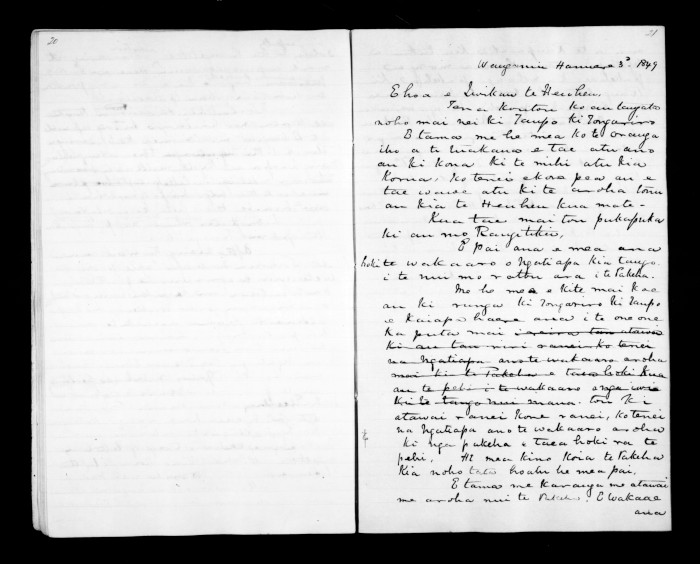 20
21
Wanganui Hanuere 3d. 1849
E hoa e Iwikau te Heuheu.
Tena koutou ko au tangata
noho mai nei ki Taupo ki Tongariro
E tama me he mea ko te oranga
iho a te Makana e tae atu ano
au ki kona ki te mihi atu kia
Korua, ko tenei ekore pea au e
tae wawe atu ki te aroha tonu
au kia te Heuheu kua mate -
Kua tae mai tou pukapuka
ki au mo Rangitikei,
E pai ana e mea ana
hoki te wakaaro o Ngatiapa kia tango
i te utu mo ratou ara i te Pakeha.
Me he mea e kite mai koe
au ki runga ki Tongariro ki Taupo
e kaiapo haere ana i te one one
ka puta mai i reira tau atawai
ki au tau riri ranei ko tenei
na Ngatiapa ano te wakaaro aroha
mai ki te Pakeha e taea hoki Kua
au te pehi i te wakaaro o nga iwi
ki te tango mana. tou ki
atawai ranei kone ranei, ko tenei
na Ngatiapa ano te wakaaro aroha
ki nga pakeha e taea hoki ra te
pehi, He mea kino koia te Pakeha
Kia noho tata hoahu he mea pai.
E tama me karanga me atawai
me aroha nui te Pakeha. E wakaae
ana